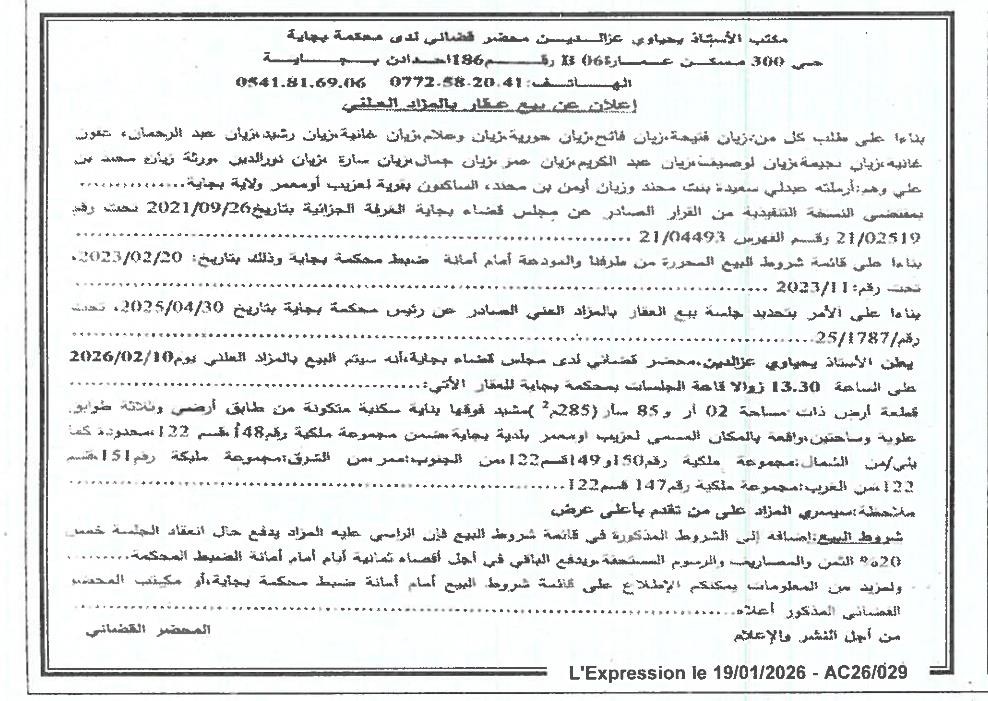 مكتب الأستاذ يحياوي عزالديـن محضر قضائي لدى محكمة بجاية
حـي 300 مسكـن عـمـارة06 B رقـــم186احدادن بـجــايـة
الهـاتـف: 0772.58.20.41 0541.81.69.06
إعلان عن بيع عقار بالمزاد العلني
بناءا على طلب كل من:زيان فتيحة،زيان فاتح،زيان حورية،زيان وعلام،زيان غانية،زيان رشيد،زيان عبد الرحمان، عنون
غانية،زيان نجيمة،زيان لوصيف،زيان عبد الكريم،زيان عمر،زيان جمال،زيان سارة ،زيان نورالدين ،ورثة زيان محند بن
علي وهم:أرملته عبدلي سعيدة بنت محند وزيان أيمن بن محند، الساكنون بقرية لعزيب أومعمر ولاية بجاية..............
بمقتضى النسخة التنفيذية من القرار الصادر عن مجلس قضاء بجاية الغرفة الجزائية بتاريخ2021/09/26 تحت رقم
21/02519 رقـم الفهرس 21/04493 ..............................
بناءا على قائمة شروط البيع المحررة من طرفنا والمودعة أمام أمانة ضبط محكمة بجاية وذلك بتاريخ: 2023/02/20،
تحت رقم:2023/11 ..............................
بناءا على الأمر بتحديد جلسة بيع العقار بالمزاد العلني الصادر عن رئيس محكمة بجاية بتاريخ 2025/04/30، تحت
رقم/25/1787..............................
يعلن الأستاذ يحياوي عزالدين،محضر قضائي لدى مجلس قضاء بجاية،أنه سيتم البيع بالمزاد العلني يوم2026/02/10
على الساعة 13.30 زوالا قاعة الجلسات بمحكمة بجاية للعقار الأتي:..............................
قطعة أرض ذات مساحة 02 آر و85 سآر (285م2 )مشيد فوقها بناية سكنية متكونة من طابق أرضي وثلاثة طوابق
علوية وساحتين،واقعة بالمكان المسمى لعزيب اومعمر بلدية بجاية،ضمن مجموعة ملكية رقم148أ،قسم 122،محدودة كما
يلي/من الشمال:مجموعة ملكية رقم150و149قسم122،من الجنوب:ممر،من الشرق:مجموعة ملكية رقم151،قسم
122،من الغرب:مجموعة ملكية رقم147 قسم122..............................
ملاحظة:سيسري المزاد على من تقدم بأعلى عرض
شروط البيع:إضافة إلى الشروط المذكورة في قائمة شروط البيع فإن الراسي عليه المزاد يدفع حال انعقاد الجلسة خمس
20% الثمن والمصاريف والرسوم المستحقة،ويدفع الباقي في أجل أقصاه ثمانية أيام أمام أمانة الضبط المحكمة..........
ولمزيد من المعلومات يمكنكم الإطلاع على قائمة شروط البيع أمام أمانة ضبط محكمة بجاية،أو مكتب المحضر
القضائي المذكور أعلاه..............................
من أجل النشر والإعلام
المحضر القضائي
L'Expression le 19/01/2026 - AC26/029